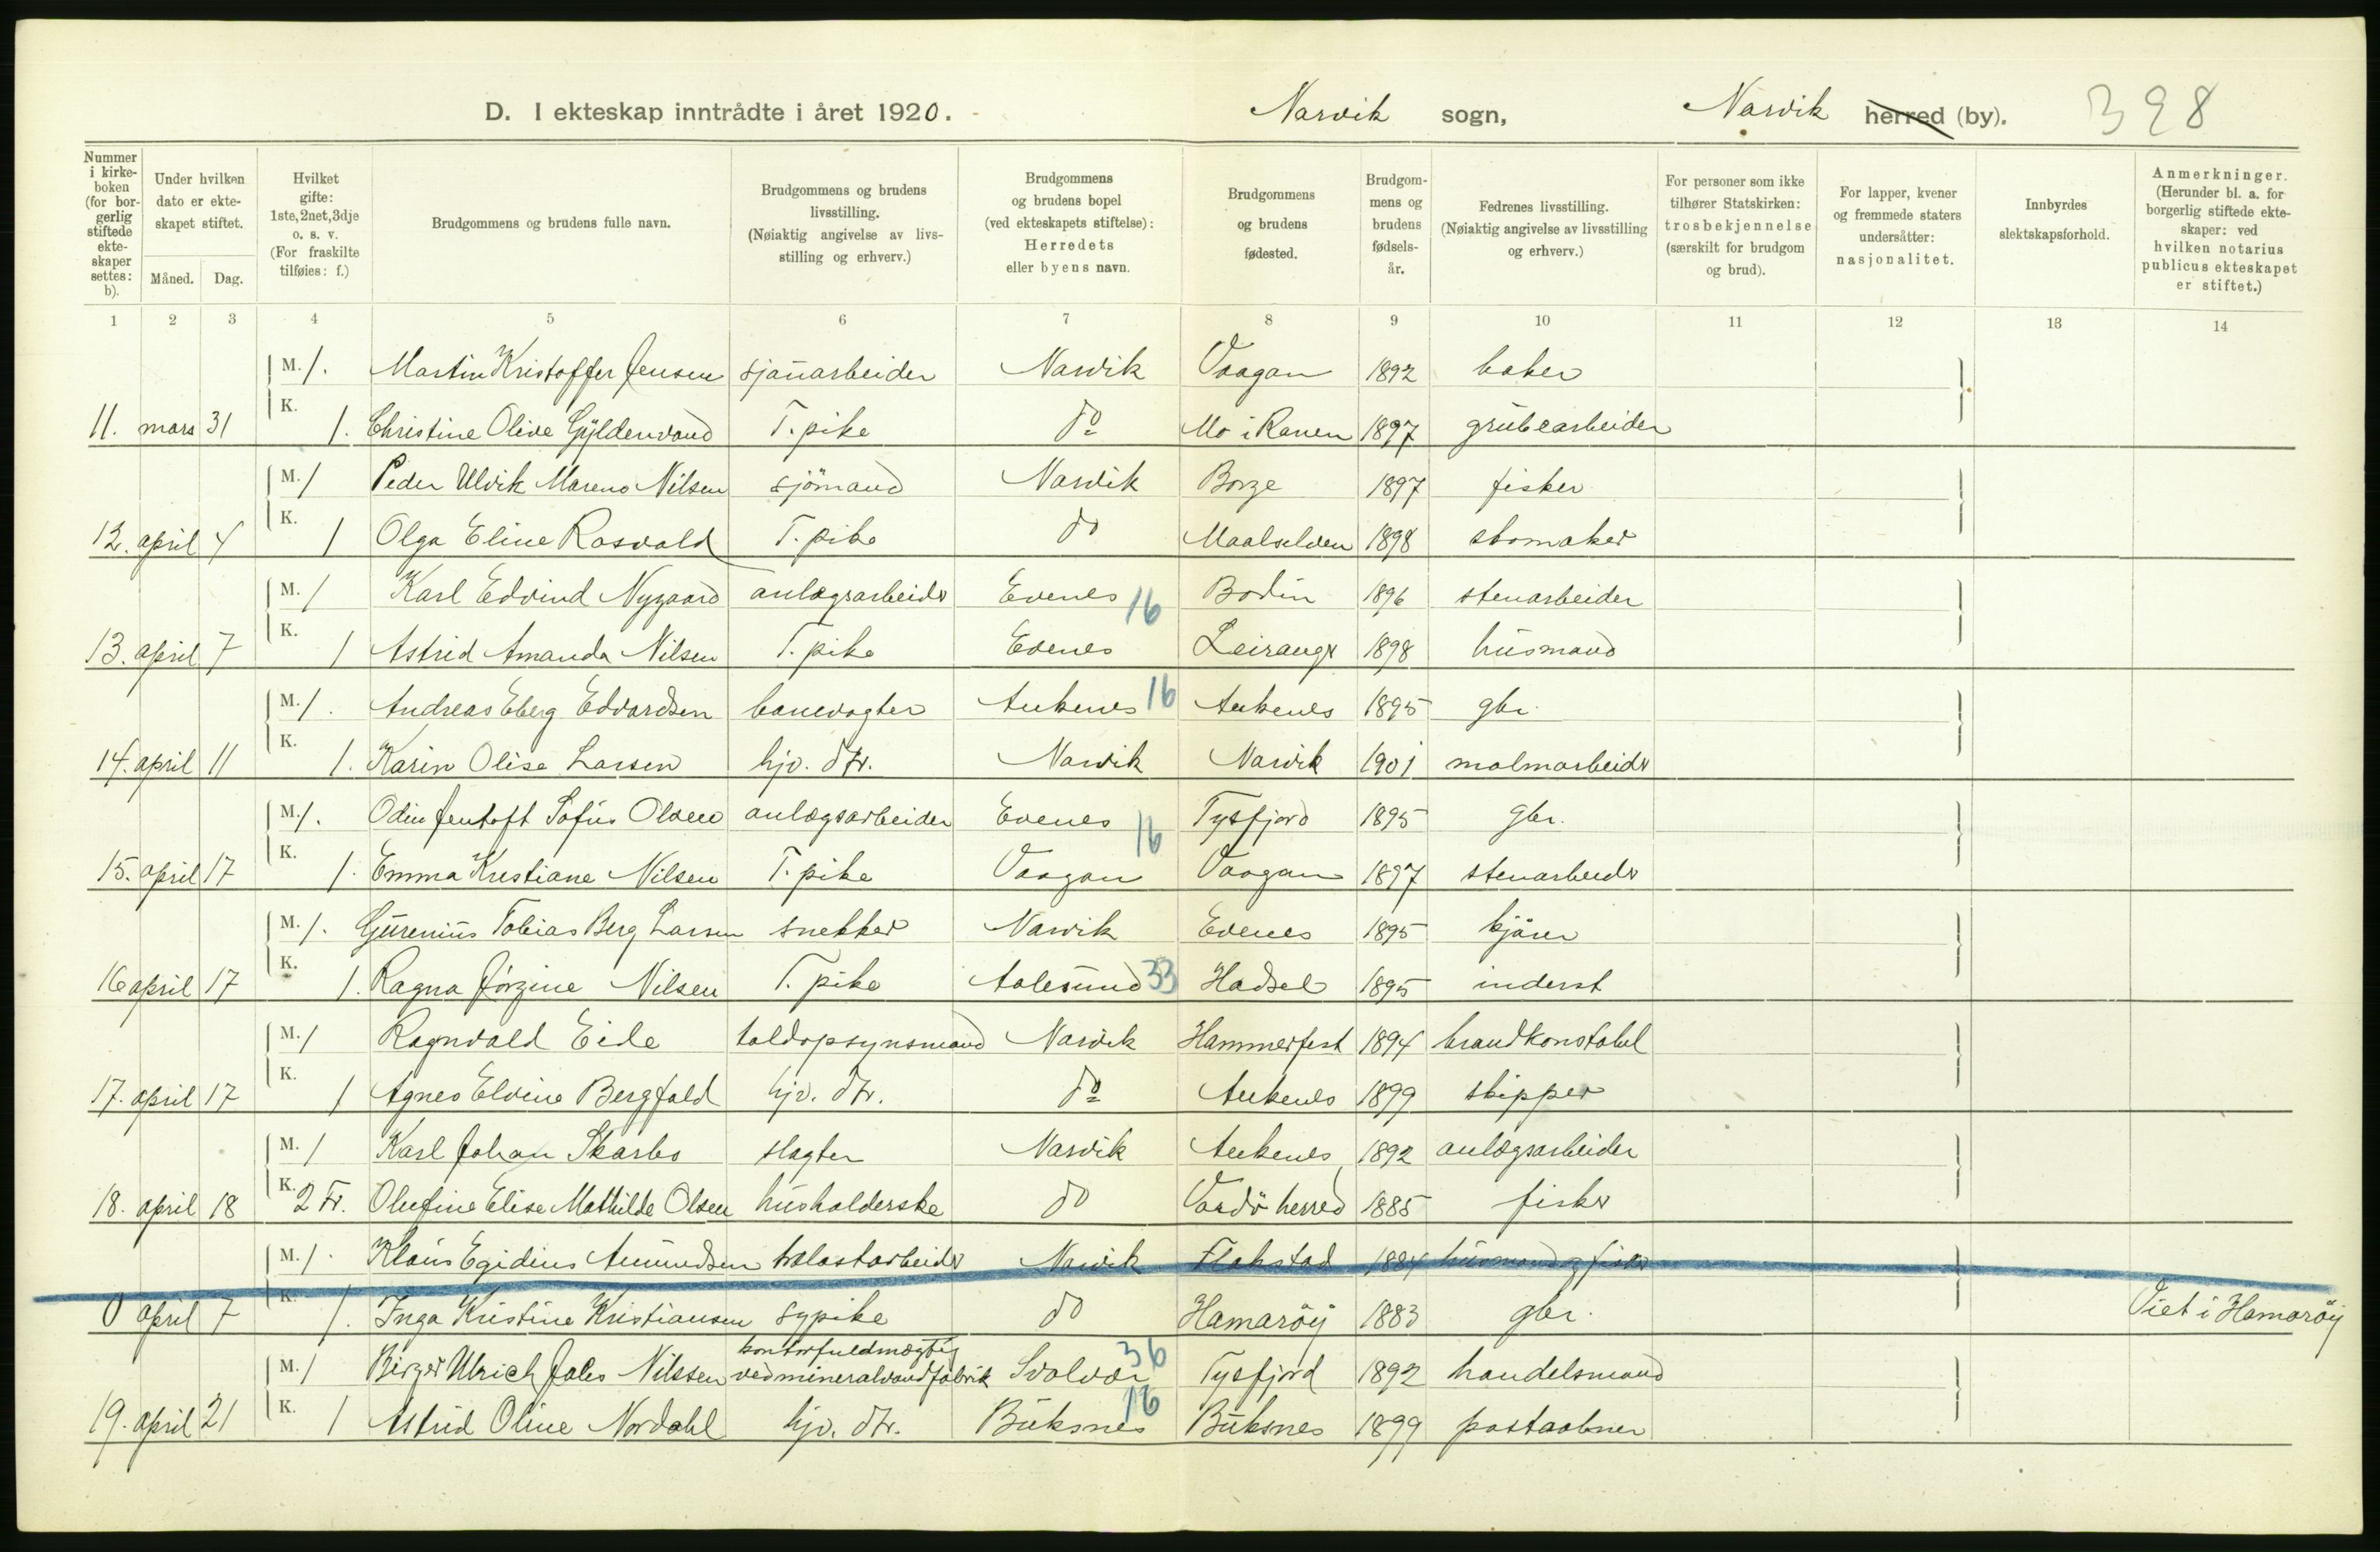 D. I ekteskap inntrådte i året 1920. Narvik sogn, Narvik herred (by). 398
Nummer i kirkeboken (for borgerlig stiftede ekteskaper settes: b).
Under hvilken dato er ekteskapet stiftet.
Måned. Dag.
Hvilket gifte: 1ste, 2net, 3dje o. s. v. (For fraskilte tilføies: f.)
Brudgommens og brudens fulle navn.
Brudgommens og brudens livsstilling. (Nøiaktig angivelse av livsstilling og erhverv.)
Brudgommens og brudens bopel (ved ekteskapets stiftelse): Herredets eller byens navn.
Brudgommens og brudens fødested.
Brudgommens og brudens fødselsår.
Fedrenes livsstilling. (Nøiaktig angivelse av livsstilling og erhverv.)
For personer som ikke tilhører Statskirken: trosbekjennelse (særskilt for brudgom og brud).
For lapper, kvener og fremmede staters undersåtter: nasjonalitet.
Innbyrdes slektskapsforhold.
Anmerkninger. (Herunder bl. a. for borgerlig stiftede ekteskaper: ved hvilken notarius publicus ekteskapet er stiftet.)
1 2 3 4 5 6 7 8 9 10 11 12 13 14
M. 1. Martin Kristoffer Jensen sjauarbeider Narvik Vaagan 1892 baker
11. mars 31 K. 1. Christine Olive Gyldenvand T. pike do Mo i Ranen 1897 grubearbeider
M. 1 Peder Ulvik Mareno Nilsen sjömand Narvik Borge 1897 fisker
12. april 4 K. 1 Olga Eline Rosvold T. pike do Maalselven 1898 skomaker
M. 1 Karl Edvind Nygaard anlægsarbeider Evenes 16 Bodin 1896 stenarbeider
13. april 7 K. 1 Astrid Amanda Nilsen T. pike Evenes Leiranger 1898 husmand
M. 1. Andreas Eberg Edvardsen banevogter Ankenes 16 Ankenes 1895 gbr.
14. april 11 K. 1. Karin Olise Larsen hjv. dtr. Narvik Narvik 1901 malmarbeider
M. 1. Odin Jentoft Sofus Olsen anlægsarbeider Evenes 16 Tysfjord 1895 gbr.
15. april 17 K. 1. Emma Kristiane Nilsen T. pike Vaagan Vaagan 1897 stenarbeider
M. 1. Tobias Berg Larsen snekker Narvik Evenes 1895 kjörer
16 april 17 K. 1. Ragna Jørgine Nilsen T. pike Aalesund 33 Hadsel 1895 inderst
M. 1 Ragnvald Eide toldopsynsmand Narvik Hammerfest 1894 brandkonstabel
17. april 17 K. 1 Agnes Elvine Bergfald hjv. dtr. do Ankenes 1899 skipper
M. 1 Karl Johan Skarbo slagter Narvik Ankenes 1892 anlægsarbeider
18. april 18 K. 2 Fr. Olufine Elise Mathilde Olsen husholderske do Vardö herred 1885 fisker
M. 1. Klaus Egidius Amundsen Narvik Flakstad 1884 husmand og fisker
0 april 7 K. 1. Inga Kristine Kristiansen sypike do Hamaröy 1883 gbr. Viet i Hamaröy
kontorfuldmægtig
M. 1 Birger Ulrich Jales Nilssen ved mineralvandfabrik Svolvær 36 Tysfjord 1892 handelsmand
19. april 21 K. 1 Astrid Oline Nordahl hjv. dtr. Buksnes 16 Buksnes 1899 postaabner